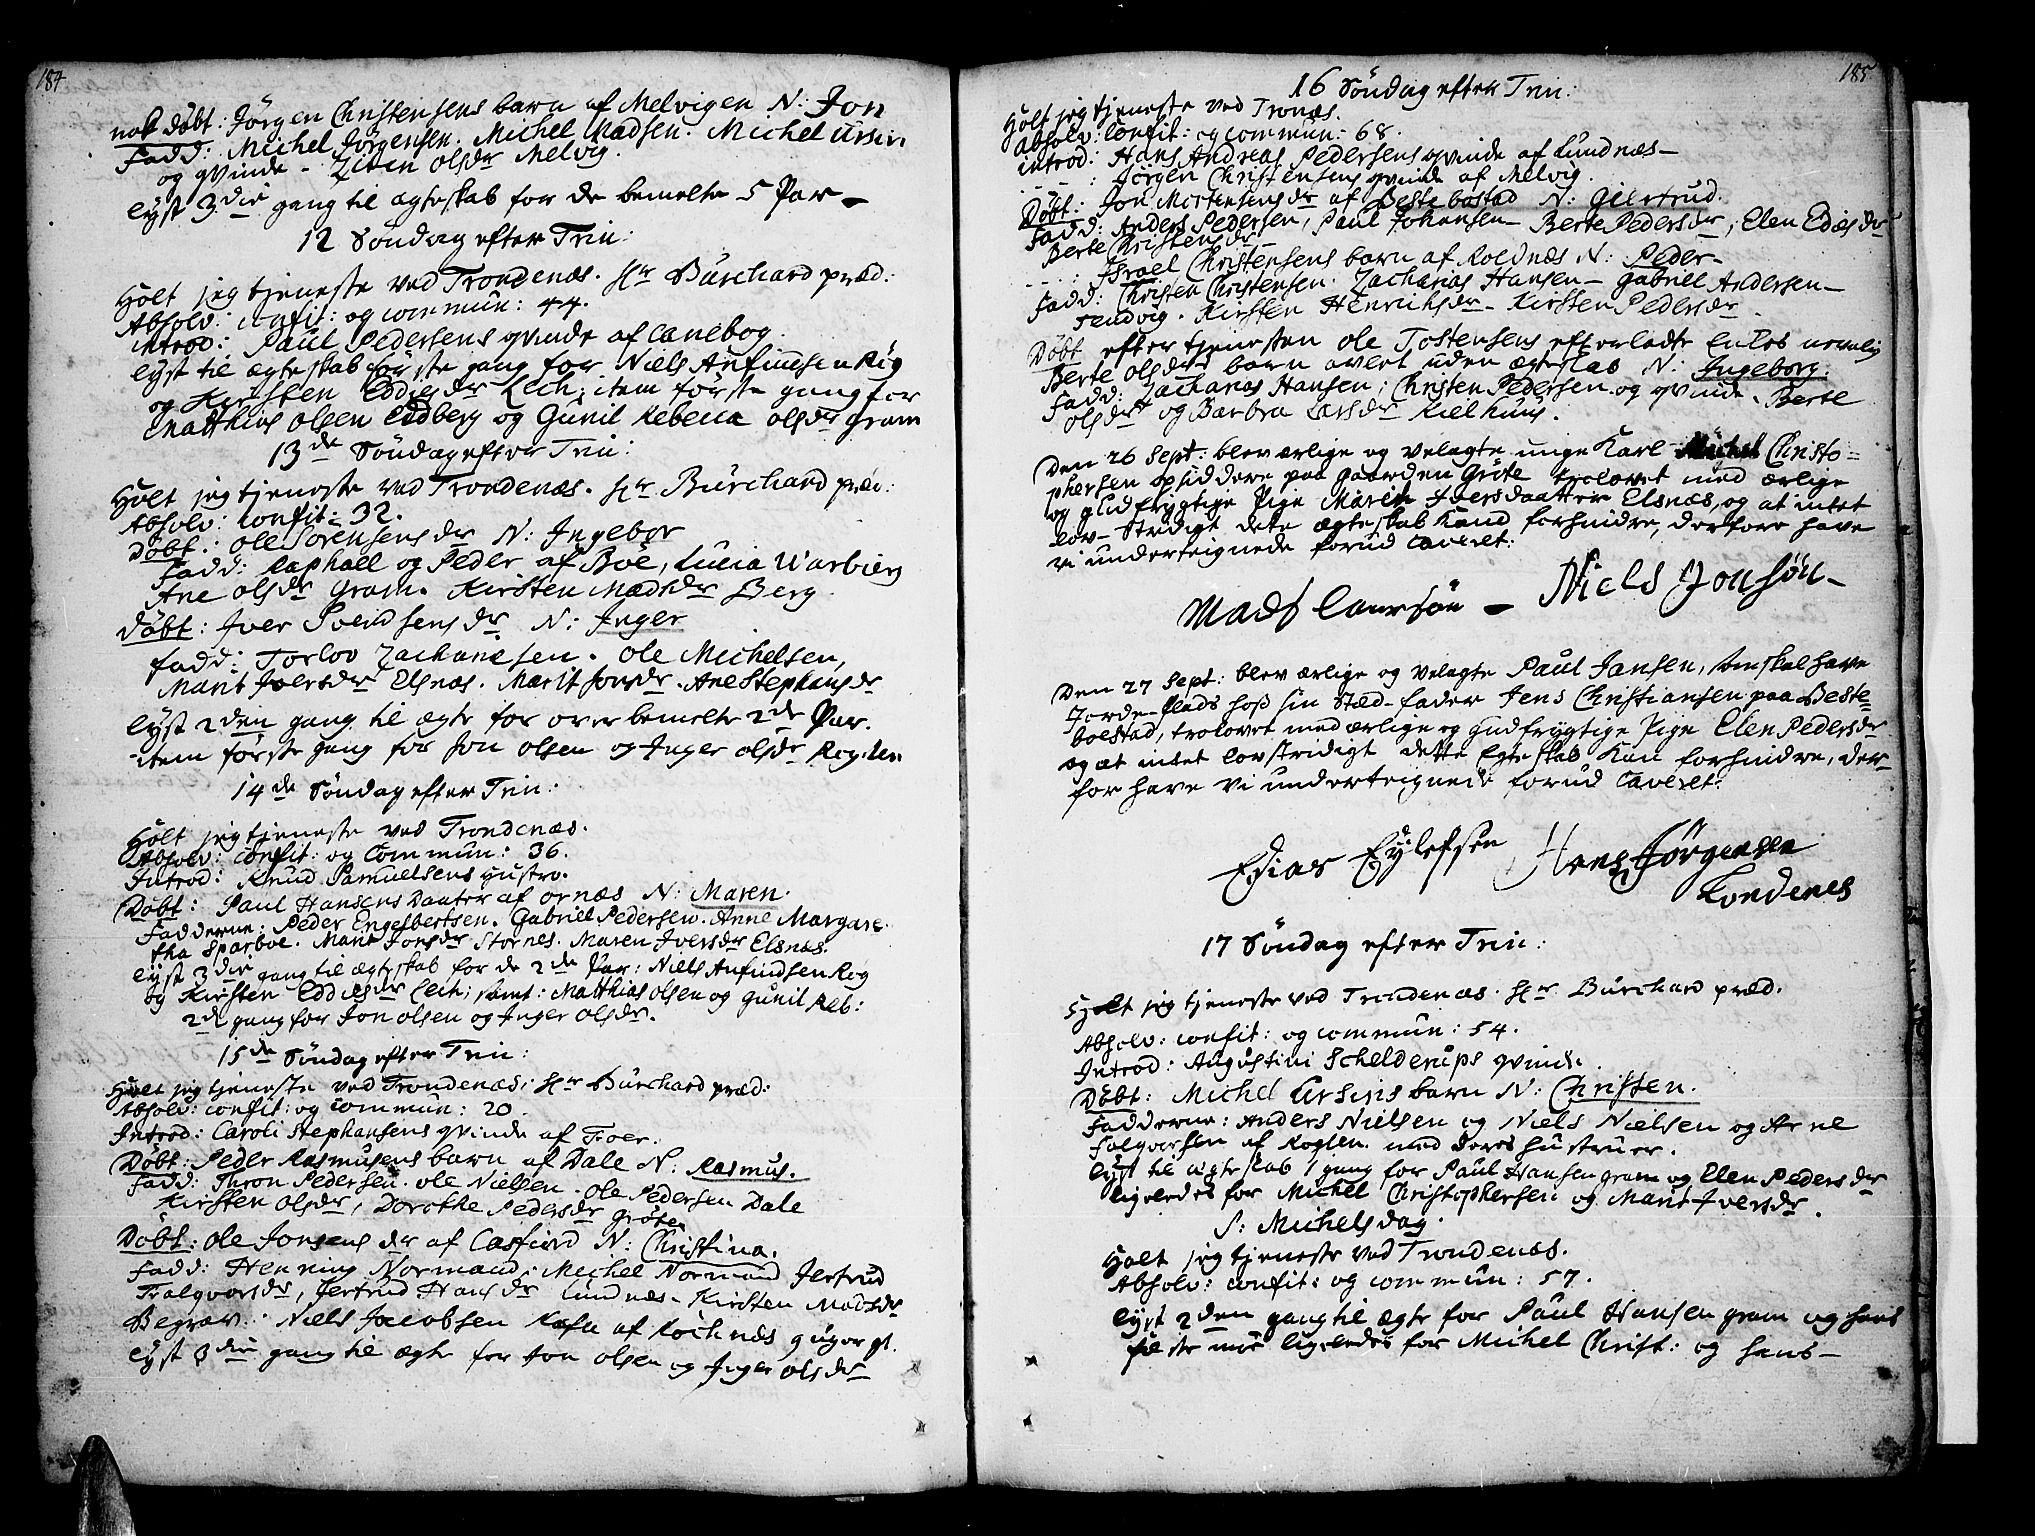 184
nok døbt: Jørgen Christensens barn af Melvigen N: Jon
Fadd: Michel Jørgensen. Michel Madsen. Michel Ursin
og qvinde - Ziren olsdr Melvig.
lyst 3die gang til ægteskab for de bemelte 5 Par -
12 Søndag efter Trin:
Holt jeg tjeneste ved Trondenæs. Hr Burchard præd:
Absolv: confit: og commun: 44.
introd: Paul Pedersens qvinde af Lanebog.
lyst til ægteskab første gang for Niels Anfindsen Røg
og Kirsten Eddisdr Lech; item første gang for
Matthias Olsen Eidberg og Gunil Rebecca olsdr gram
13de Søndag efter Trin:
Holt jeg tjeneste ved Trondenæs. Hr Burchard præd:
Absolv: confit: 32.
Døbt: Ole Sørensens dr N: Ingebor
Fadd: Raphall og Peder af Böe, Lucia Warbien
Ane olsdr Gram. Kirsten Madsdr Berg.
Døbt: Iver Svendsens dr N: Inger
fadd: Torlov Zachariesen. Ole Michelsen,
Marit Iversdr Elsnæs. Marit Jonsdr. Ane Stephansdr
lyst 2den gang til ægte for overbemelte 2de Par.
item første gang for Jon Olsen og Inger olsdr Rogslen
14de Søndag efter Trin:
Holt jeg tjeneste ved Trondenæs.
Absolv: confit: og Commun: 36.
Introd: Knud Samuelsens hustro.
Døbt: Paul Hansens Daater af ornæs N: Maren.
Fadderne: Peder Engelbertsen. Gabriel Pedersen. Anne Margare-
tha Sparboe. Marit Jonsdr Stornes. Maren Iversdr Elsnæs.
lyst 3die gang til ægteskab for de 2de Par: Niels Anfindsen Røg
og Kirsten Eddisdr Lech; samt: Matthias Olsen og Gunil Reb:
2de gang for Jon Olsen og Inger olsdr.
15de Søndag efter Trin:
Holt jeg tjeneste ved Trondenæs; Hr Burchard præd:
Absolv: confit: og commun: 20.
Introd: Caroli Stephansens qvinde af Troer.
Døbt: Peder Rasmusens barn af Dale N: Rasmus.
Fadd: Thron Pedersen. Ole Nielsen. Ole Pedersen Dale
Kirsten olsdr, Dorothe Pedersdr Grøte
Døbt: Ole Jonsens dr af Casfiord N: Christina.
Fadd: Henning Normand. Michel Normand Jertrud
Tralgvorsdr, Jertrud Hansdr Lundnæs. Kirsten Madsdr
Begrav: Niels Jacobsen af Rochnæs 9 uger gl.
lyst 3die gang til ægte for Jon Olsen og Inger olsdr
185
16 Søndag efter Trin:
Holt jeg tjeneste ved Tronæs.
absolv: confit: og commun: 68.
introd: Hans Andreas Pedersens qvinde af Lundnæs -
: Jørgen Christensens qvinde af Melvig.
Døbt: Jon Mortensens dr af Bestebostad N: Giertrud.
Fadd: Anders Pedersen, Paul Johansen - Berte Pedersdr, Elen Ediæsdr
Berte Christensdr -
: Israel Christensens barn af Roldnæs N: Peder -
Fadd: Christen Christensen. Zacharias Hansen - Gabriel Andersen -
Tendvig. Kirsten Henrichsdr - Kirsten Pedersdr.
Døbt efter tjenesten Ole Tostensens efterladte Enkes navnlig
Berte olsdrs barn avlet uden ægteskab N: Ingeborg.
Fadd: Zacharias Hansen; Christen Pedersen og qvinde. Berte
olsdr og Barbra Larsdr Kielhuus.
Den 26 Sept: blev ærlige og velagte unge Karl Michel Christo-
phersen opsiddere paa gaarden Grøte trolovet med ærlige
og gudfrygtige Pige Marit Iversdaatter Elsnæs, og at intet
lov-Stridigt dete ægteskab kand forhindre, derfore have
vi underteignede forud caveret:
Mads Laursøn - Niels Jonsøn -
Den 27 Sept: blev ærlige og velagte Paul Jansen, som skal have
Jorde-Plads hoss sin Stæd-fader Jens Christiansen paa Beste-
boestad, trolovet med ærlige og gudfrygtige Pige Elen Pedersdr
og at intet lovstridigt dette Egteskab kan forhindre, der-
for have vi underteignede forud Caveret:
Edias Eylefsen Hans Jørgensen
Trondenes
17 Søndag efter Trin:
Holt jeg tjeneste ved Trondenæs. Hr Burchard præd.
Absolv: confit: og commun: 54.
Introd: Augustini Schelderups qvinde.
Døbt: Michel Ursins barn N: Christen.
Fadderne: Anders Nielsen og Niels Nielsen og Arne
Falqvorsen af Rogslen med deres hustruer.
lyst til ægteskab 1 gang for Paul Hansen gram og Elen Pedersdr
ligeledes for Michel Christophersen og Marit Iversdr.
S: Michelsdag.
Holt jeg tjeneste ved Trondenæs.
Absolv: confit: og commun: 57.
lyst 2den gang til ægte for Paul Hansen gram og hans
fæste møe ligeledes for Michel Christ: og hans -